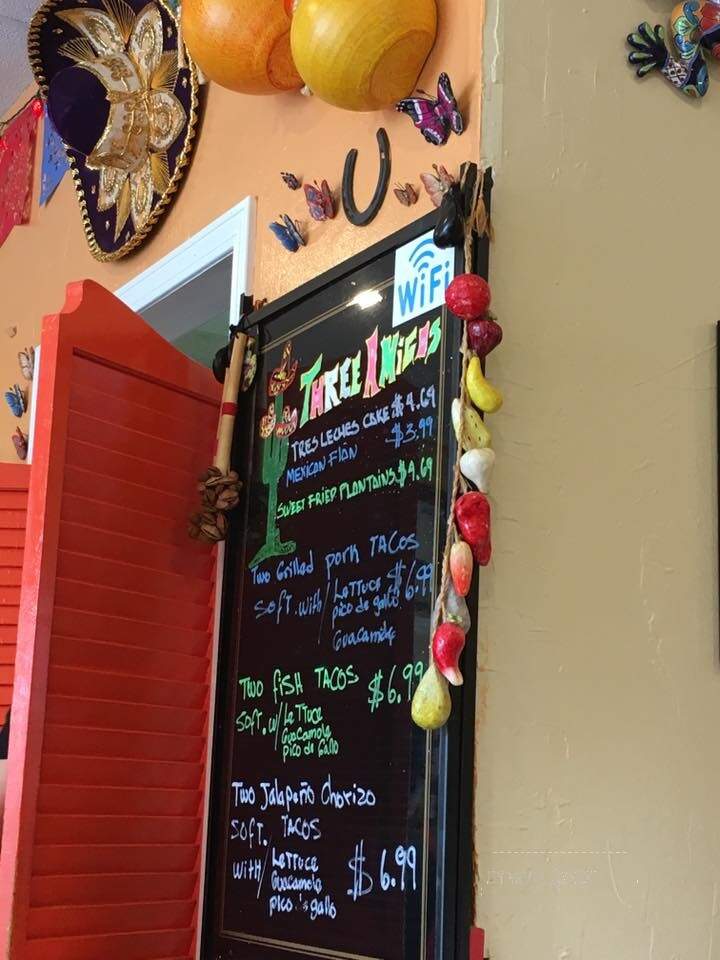 WiFi
THREE AMIGOS
TRES LECHES CAKE $4.69
MEXICAN FlAN $3.99
SWEET FRIED PLANTAINS $4.69
Two Grilled pork TACOS
SOFT. with/ LeTTuce $6.99
pico de gallo.
Guacamole
TWO FISH TACOS $6.99
SOFT. w/ LeTTuce
Guacamole
pico de Gallo
Two Jalapeño Chorizo
SOFT. TACOS
WITH/ LeTTuce $6.99
Guacamole
pico gallo